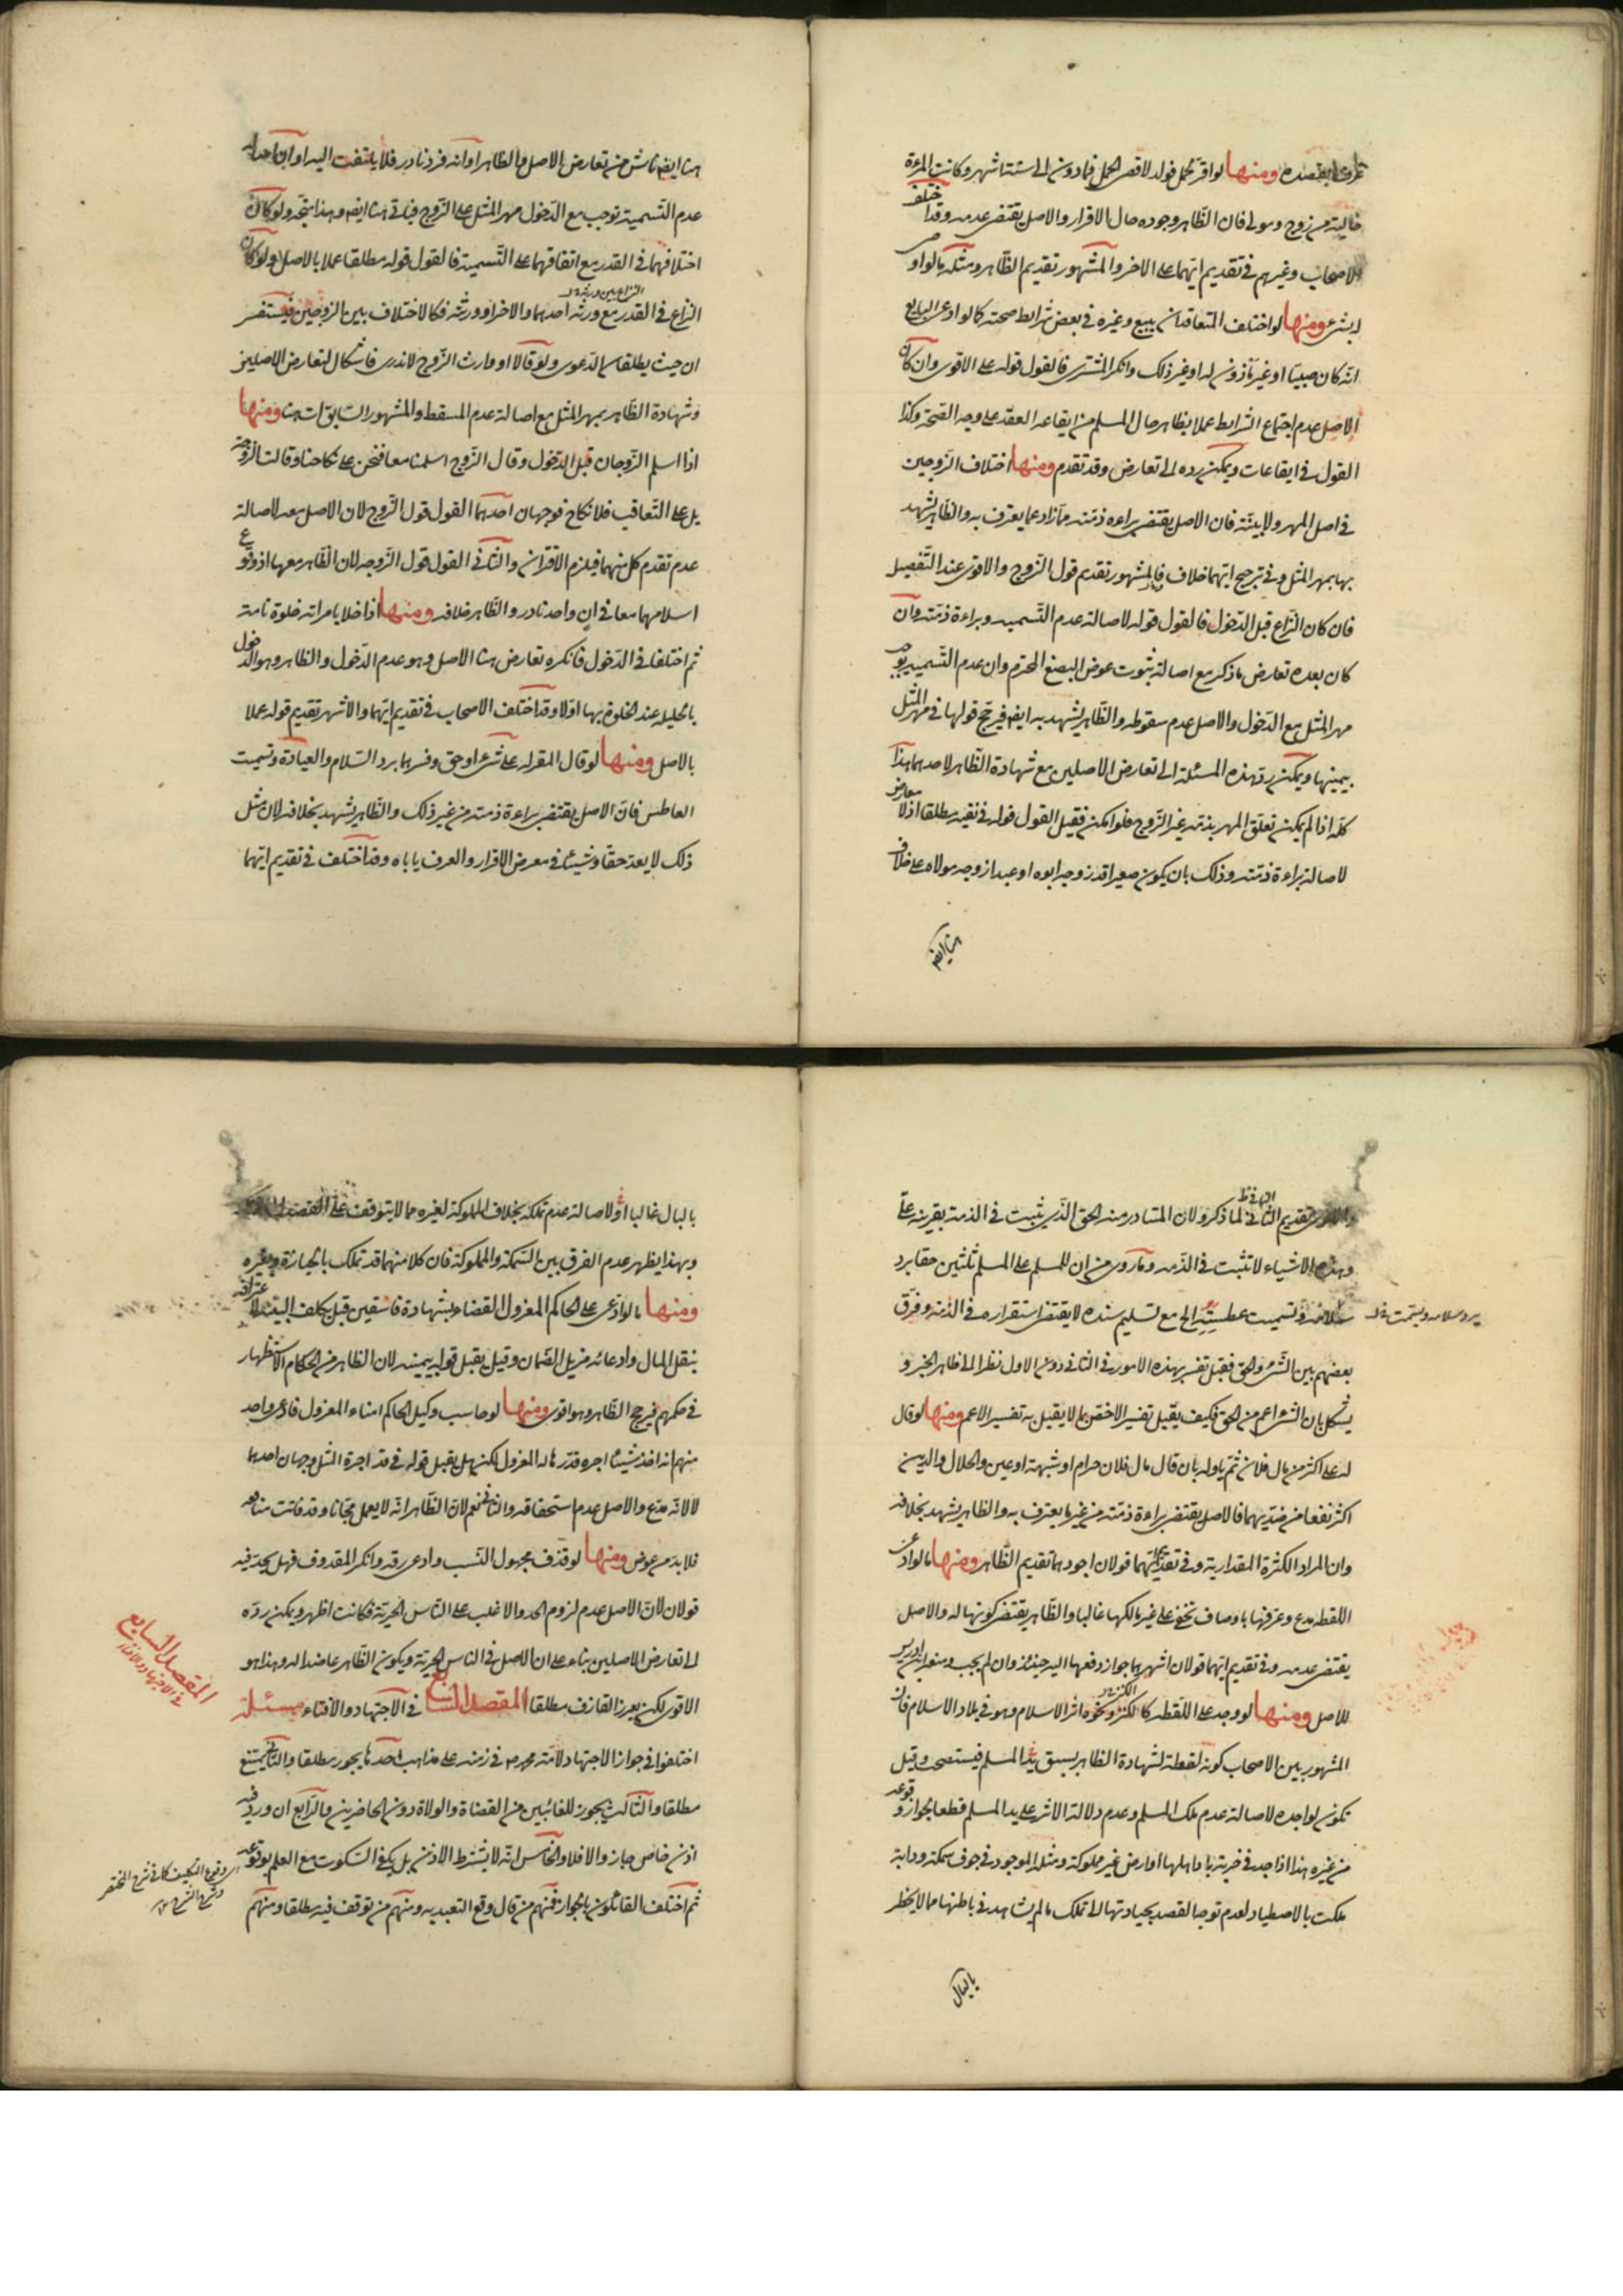 بمقتضده ومنها لو اقر بحمل فولد لاقصى الحمل فما دون الى ستة اشهر وكانت المرءة
خالية من زوج ومولى فان الظاهر وجوده حال الاقرار والاصل يقتضى عدمه وقد اختلف
الاصحاب وغيرهم فى تقديم ايهما على الاخر والمشهور تقديم الظاهر ومثله ما لو اوصى
ومنها لو اختلف المتعاقدان ببيع وغيره فى بعض شرايط صحته كما لو ادعى البايع
انه كان صبيا او غير ماذون له او غير ذلك وانكر المشترى فالقول قوله على الاقوى وان كان
الاصل عدم اجتماع الشرايط عملا بظاهر حال المسلم من ايقاعه العقد على وجه الصحة وكذا
القول فى ايقاعات ويمكن رده الى تعارض وقد تقدم ومنها اختلاف الزوجين
فى اصل المهر ولا بينة فان الاصل يقتضى براءة ذمته مما زاد عما يعترف به والظاهر يشهد
بها بمهر المثل وفى ترجيح ايهما خلاف فالمشهور تقديم قول الزوج والاقوى عند التفصيل
فان كان النزاع قبل الدخول فالقول قوله لاصالة عدم التسمية وبراءة ذمته وان
كان بعده تعارض ما ذكر مع اصالة ثبوت عوض البضع المحترم وان عدم التسمية يوجب
مهر المثل مع الدخول والاصل عدم سقوطه والظاهر يشهد به ايضا فيرجح قولها فى مهر المثل
بيمينها ويمكن رد هذه المسئلة الى تعارض الاصلين مع شهادة الظاهر لاحدهما هذا
كله اذا لم يمكن تعلق المهر بذمة غير الزوج فلو امكن فقيل القول قوله فى نفيه مطلقا اذ لا معارض
لاصالة براءة ذمته وذلك بان يكون صغيرا قد زوجه ابوه او عبدا زوجه مولاه على خلاف
هنا ايضا
هنا ايضا ناش من تعارض الاصل والظاهر او انه فرد نادر فلا يلتفت اليه او ان
عدم التسمية توجب مع الدخول مهر المثل على الزوج فياتى هنا ايضا وهذا يتجه ولو كان
اختلافهما فى القدر مع اتفاقهما على التسمية فالقول قوله مطلقا عملا بالاصل ولو كان
النزاع بين ورثة
النزاع فى القدر مع ورثة احدهما والاخر او ورثته فكالاختلاف بين الزوجين فيستفسر
ان حيث يطلقا الدعوى ولو قالا او وارث الزوج لا ندرى فاشكال لتعارض الاصلين
وشهادة الظاهر بمهر المثل مع اصالة عدم المسقط والمشهور السابق ات هنا ومنها
اذا اسلم الزوجان قبل الدخول وقال الزوج اسلمنا معا فنحن على نكاحنا وقالت الزوجة
بل على التعاقب فلا نكاح فوجهان احدهما القول قول الزوج لان الاصل معه لاصالة
عدم تقدم كل منهما فيلزم الاقتران والثانى القول قول الزوجة لان الظاهر معها اذ وقوع
اسلامهما معا فى ان واحد نادر والظاهر خلافه ومنها اذا خلا بامراته خلوة تامة
ثم اختلفا فى الدخول فانكره تعارض هنا الاصل وهو عدم الدخول والظاهر وهو الدخول
بالحليلة عند الخلوة بها اولا وقد اختلف الاصحاب فى تقديم ايهما والاشهر تقديم قوله عملا
بالاصل ومنها لو قال المقر له على شىء او حق وفسرهما برد السلام والعيادة وتسميت
العاطس فان الاصل يقتضى براءة ذمته من غير ذلك والظاهر يشهد بخلافه لان مثل
ذلك لا يعد حقا وشيئا فى معرض الاقرار والعرف ياباه وقد اختلف فى تقديم ايهما
تقديم الثانى لما ذكر ولان المتبادر منه الحق الذى يثبت فى الذمة بقرينة على
وهذه الاشياء لا تثبت فى الذمة وما روى من ان للمسلم على المسلم ثلثين حقا يرد
سلامه وتسميت عطسته الخ مع تسليم سنده لا يقتضى استقراره فى الذمة وفرق
يرد سلامه ويسمت
بعضهم بين الشىء والحق فقبل تفسير بهذه الامور فى الثانى دون الاول نظرا الى ظاهر الخبر و
يشكل بان الشىء اعم من الحق فكيف يقبل تفسير الاخص بما لا يقبل به تفسير الاعم ومنها لو قال
له على اكثر من مال فلان ثم ياوله بان قال مال فلان حرام او شبهة او عين والحلال والدين
اكثر نفعا من ضديهما فالاصل يقتضى براءة ذمته من غير ما يعترف به والظاهر يشهد بخلافه
وان المراد الكثرة المقدارية وفى تقديم ايهما قولان اجودهما تقديم الظاهر ومنها ما لو ادعى
اللقطة مدع وعرفها باوصاف تخفى على غير مالكها غالبا والظاهر يقتضى كونها له والاصل
يقتضى عدمه وفى تقديم ايهما قولان اشهرهما جواز دفعها اليه حينئذ وان لم يجب ومنع ابن ادريس
للاصل ومنها لو وجد على اللقطة كالكنز ونحوه اثر الاسلام وهو فى بلاد الاسلام فان
المشهور بين الاصحاب كونه لقطة لشهادة الظاهر بسبق يد المسلم فيستصحب وقيل
تكون لواجده لاصالة عدم ملك المسلم وعدم دلالة الاثر على يد المسلم قطعا لجواز وقوعه
من غيره هذا اذا وجد فى خربة باد اهلها او ارض غير مملوكة ومثله الموجود فى جوف سمكة ودابة
ملكت بالاصطياد لعدم توجه القصد بحيازتها الى تملك ما لم يشاهد فى باطنها مما لا يخطر
بالبال
بالبال غالبا او لاصالة عدم تملكه بخلاف المملوكة لغيره مما لا يتوقف على القصد
وبهذا يظهر عدم الفرق بين السمكة والمملوكة فان كلا منهما قد تملك بالحيازة وغيره
ومنها ما لو ادعى على الحاكم المعزول القضاء بشهادة فاسقين قبل يكلف البينة لاعترافه
بنقل المال وادعائه مزيل الضمان وقيل يقبل قوله بيمينه لان الظاهر من الحكام الاستظهار
فى حكمهم فيرجح الظاهر وهو اقوى ومنها لو حاسب وكيل الحاكم امناء المعزول فادعى واحد
منهم انه اخذ شيئا اجره قدره له المعزول لكن هل يقبل قوله فى قدر اجرة المثل وجهان احدهما
لا لانه مدع والاصل عدم استحقاقه والثانى نعم لان الظاهر انه لا يعمل مجانا وقد فاتت منافعه
فلا بد من عوض ومنها لو قذف مجهول النسب وادعى رقه وانكر المقذوف فهل يحد فيه
قولان لان الاصل عدم لزوم الحد والاغلب على الناس الحرية فكانت اظهر ويمكن رده
الى تعارض الاصلين بناء على ان الاصل فى الناس الحرية ويكون الظاهر عاضدا له وهذا هو
الاقوى لكن يعزر القاذف مطلقا المقصد السابع فى الاجتهاد والافتاء مسئلة
المقصد السابع
فى الاجتهاد والافتاء
اختلفوا فى جواز الاجتهاد لامة محمد ص فى زمنه على مذاهب احدها يجوز مطلقا والثانى يمتنع
مطلقا والثالث يجوز للغائبين من القضاة والولاة دون الحاضرين والرابع ان ورد فيه
اذن خاص جاز والا فلا والخامس انه لا يشترط الاذن بل يكفى السكوت مع العلم بوقوعه
ثم اختلف القائلون بالجواز فمنهم من قال وقع التعبد به ومنهم من توقف فيه مطلقا ومنهم
وقوع التكليف كما فى شرح المختصر